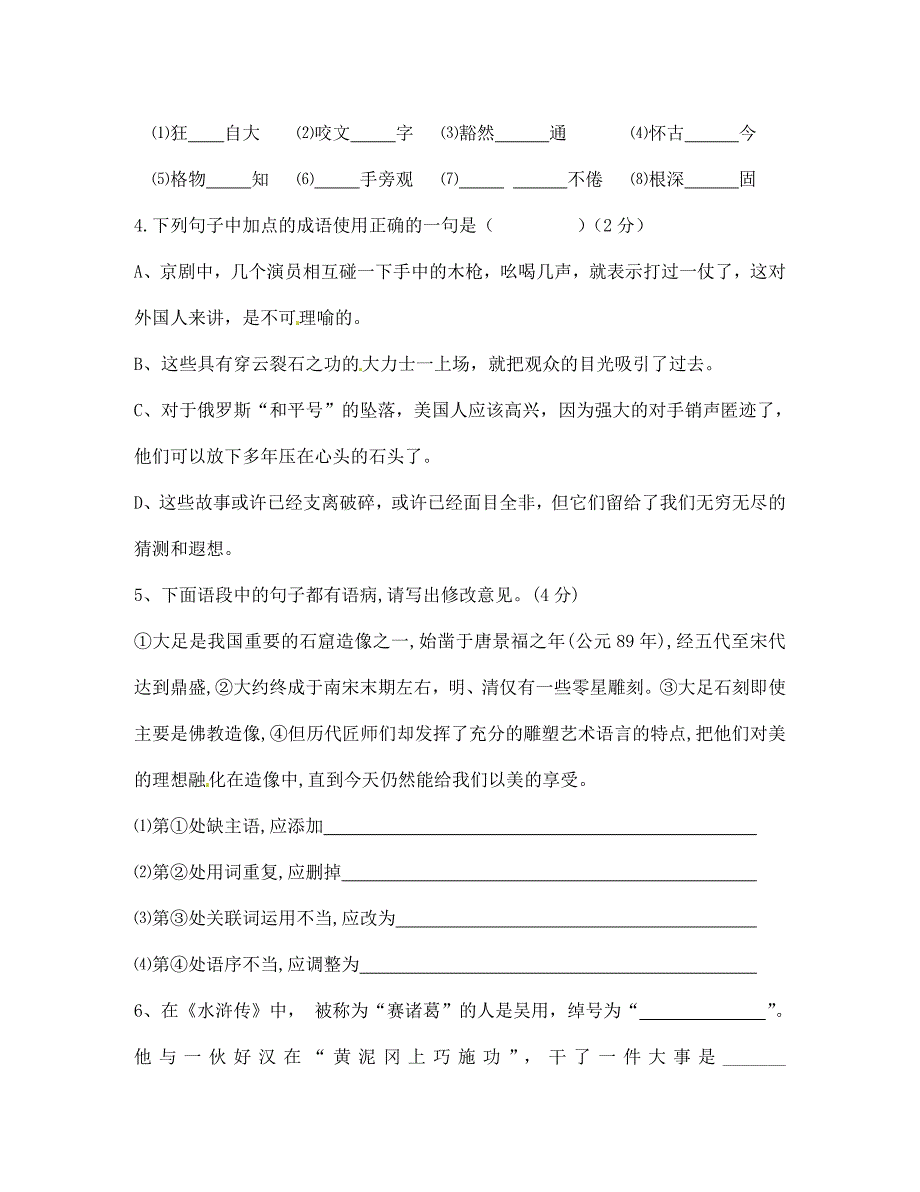 ⑴狂____自大 ⑵咬文_____字 ⑶豁然______通 ⑷怀古______今
⑸格物_____知 ⑹_____手旁观 ⑺_____ ______不倦 ⑻根深______固
4.下列句子中加点的成语使用正确的一句是（ ）（2分）
A、京剧中，几个演员相互碰一下手中的木枪，吆喝几声，就表示打过一仗了，这对
外国人来讲，是不可理喻的。
B、这些具有穿云裂石之功的大力士一上场，就把观众的目光吸引了过去。
C、对于俄罗斯“和平号”的坠落，美国人应该高兴，因为强大的对手销声匿迹了，
他们可以放下多年压在心头的石头了。
D、这些故事或许已经支离破碎，或许已经面目全非，但它们留给了我们无穷无尽的
猜测和遐想。
5、下面语段中的句子都有语病,请写出修改意见。(4分)
①大足是我国重要的石窟造像之一,始凿于唐景福之年(公元89年),经五代至宋代
达到鼎盛,②大约终成于南宋末期左右，明、清仅有一些零星雕刻。③大足石刻即使
主要是佛教造像,④但历代匠师们却发挥了充分的雕塑艺术语言的特点,把他们对美
的理想融化在造像中,直到今天仍然能给我们以美的享受。
⑴第①处缺主语,应添加________________________________________________
⑵第②处用词重复,应删掉______________________________________________
⑶第③处关联词运用不当,应改为________________________________________
⑷第④处语序不当,应调整为____________________________________________
6、在《水浒传》中， 被称为“赛诸葛”的人是吴用，绰号为“______________”。
他与一伙好汉在“黄泥冈上巧施功”，干了一件大事是_______